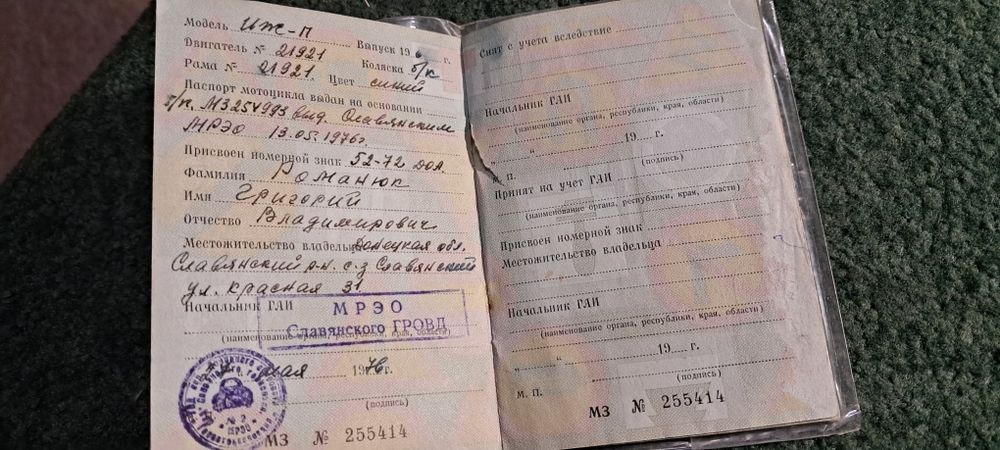 Модель ИЖ-П Выпуск 196 г.
Двигатель № 21921 Коляска б/к
Рама № 21921 Цвет синий
Паспорт мотоцикла выдан на основании
т/п. МЗ254993 выд. Славянским
МРЭО 13.05.1976г.
Присвоен номерной знак 52-72 дол
Фамилия Романюк
Имя Григорий
Отчество Владимирович
Местожительство владельца Донецкая обл.
Славянский р-н. с-з Славянский
ул. Красная 31
Начальник ГАИ
МРЭО
Славянского ГРОВД
(наименование органа, республики, края, области)
мая 1976г.
(подпись)
№ 2
МРЭО
МЗ № 255414
Снят с учета вследствие
Начальник ГАИ
(наименование органа, республики, края, области)
„ “ 19 г.
М. П. (подпись)
Принят на учет ГАИ
(наименование органа, республики, края, области)
Присвоен номерной знак
Местожительство владельца
Начальник ГАИ
(наименование органа, республики, края, области)
„ “ 19 г.
М. П. (подпись)
МЗ № 255414